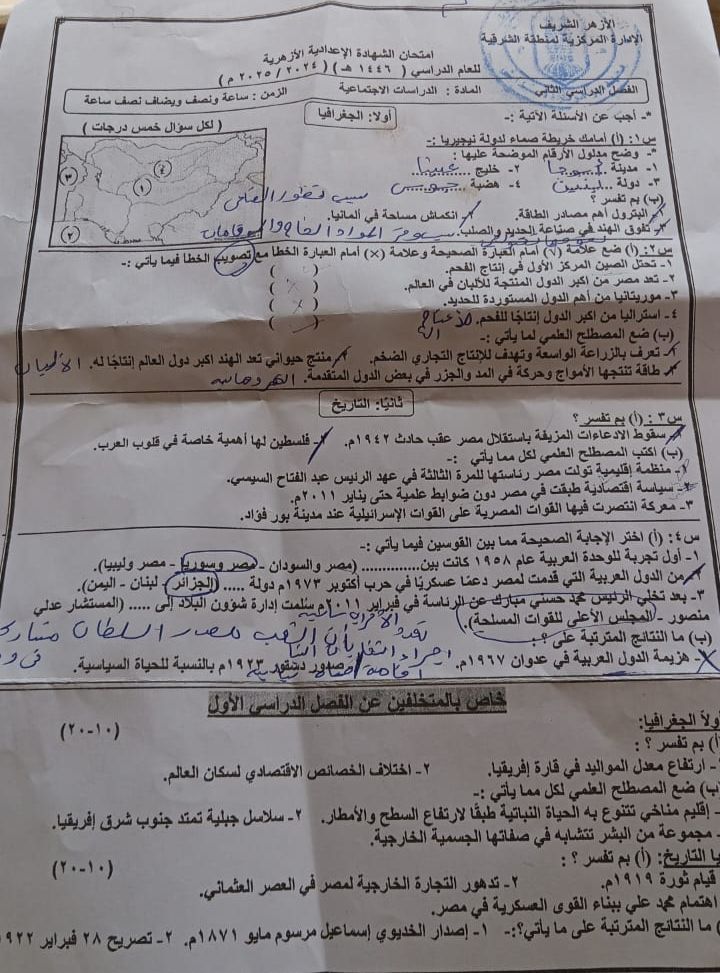 الأزهر الشريف
الإدارة المركزية لمنطقة الشرقية
امتحان الشهادة الإعدادية الأزهرية
للعام الدراسي ( ١٤٤٦ هـ ) ( ٢٠٢٤ / ٢٠٢٥ م )
الفصل الدراسي الثاني المادة : الدراسات الاجتماعية الزمن : ساعة ونصف ويضاف نصف ساعة
*- أجب عن الأسئلة الآتية :- أولا: الجغرافيا ( لكل سؤال خمس درجات )
س١: (أ) أمامك خريطة صماء لدولة نيجيريا :-
*- وضح مدلول الأرقام الموضحة عليها :
١- مدينة أبوجا ٢- خليج غينيا
٣- دولة بنين ٤- هضبة جوس
١ ٢ ٣ ٤
(ب) بم تفسر ؟
١- البترول أهم مصادر الطاقة. ٢- انكماش مساحة في ألمانيا.
٣- تفوق الهند في صناعة الحديد والصلب.
س٢: (أ) ضع علامة (√) أمام العبارة الصحيحة وعلامة (×) أمام العبارة الخطأ مع تصويب الخطأ فيما يأتي :-
١- تحتل الصين المركز الأول في إنتاج الفحم. ( )
٢- تعد مصر من اكبر الدول المنتجة للألبان في العالم. ( )
٣- موريتانيا من أهم الدول المستوردة للحديد. ( )
٤- استراليا من اكبر الدول إنتاجًا للفحم. ( )
(ب) ضع المصطلح العلمي لما يأتي :-
١- تعرف بالزراعة الواسعة وتهدف للإنتاج التجاري الضخم. ٢- منتج حيواني تعد الهند اكبر دول العالم إنتاجًا له. الألبان
٣- طاقة تنتجها الأمواج وحركة في المد والجزر في بعض الدول المتقدمة.
ثانيًا: التاريخ
س٣: (أ) بم تفسر ؟
١- سقوط الادعاءات المزيفة باستقلال مصر عقب حادث ١٩٤٢م. ٢- فلسطين لها أهمية خاصة في قلوب العرب.
(ب) اكتب المصطلح العلمي لكل مما يأتي :-
١- منظمة إقليمية تولت مصر رئاستها للمرة الثالثة في عهد الرئيس عبد الفتاح السيسي.
٢- سياسة اقتصادية طبقت في مصر دون ضوابط علمية حتى يناير ٢٠١١م.
٣- معركة انتصرت فيها القوات المصرية على القوات الإسرائيلية عند مدينة بور فؤاد.
س٤: (أ) اختر الإجابة الصحيحة مما بين القوسين فيما يأتي :-
١- أول تجربة للوحدة العربية عام ١٩٥٨ كانت بين............. (مصر والسودان - مصر وسوريا - مصر وليبيا).
٢- من الدول العربية التي قدمت لمصر دعمًا عسكريًا في حرب أكتوبر ١٩٧٣م دولة ..... (الجزائر - لبنان - اليمن).
٣- بعد تخلي الرئيس محمد حسني مبارك عن الرئاسة في فبراير ٢٠١١م سلمت إدارة شؤون البلاد إلى ..... (المستشار عدلي
منصور - المجلس الأعلى للقوات المسلحة).
(ب) ما النتائج المترتبة على ؟ :-
١- هزيمة الدول العربية في عدوان ١٩٦٧م. ٢- صدور دستور ١٩٢٣م بالنسبة للحياة السياسية.
خاص بالمتخلفين عن الفصل الدراسي الأول
أولاً الجغرافيا: (١٠-٢٠)
(أ) بم تفسر ؟ :
- ارتفاع معدل المواليد في قارة إفريقيا. ٢- اختلاف الخصائص الاقتصادي لسكان العالم.
(ب) ضع المصطلح العلمي لكل مما يأتي :-
- إقليم مناخي تتنوع به الحياة النباتية طبقًا لارتفاع السطح والأمطار. ٢- سلاسل جبلية تمتد جنوب شرق إفريقيا.
- مجموعة من البشر تتشابه في صفاتها الجسمية الخارجية.
يا التاريخ: (أ) بم تفسر ؟ : (١٠-٢٠)
قيام ثورة ١٩١٩م. ٢- تدهور التجارة الخارجية لمصر في العصر العثماني.
اهتمام محمد علي ببناء القوى العسكرية في مصر.
) ما النتائج المترتبة على ما يأتي؟:- ١- إصدار الخديوي إسماعيل مرسوم مايو ١٨٧١م. ٢- تصريح ٢٨ فبراير ١٩٢٢